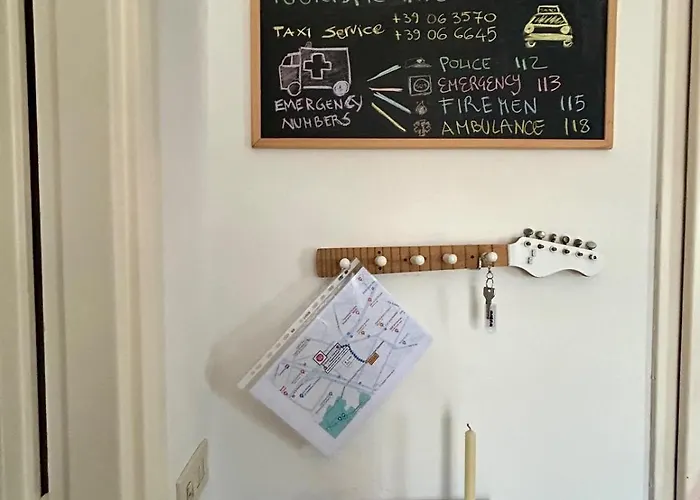 TAXI Service +39 06 3570
+39 06 6645
EMERGENCY
NUMBERS
POLICE 112
EMERGENCY 113
FIREMEN 115
AMBULANCE 118